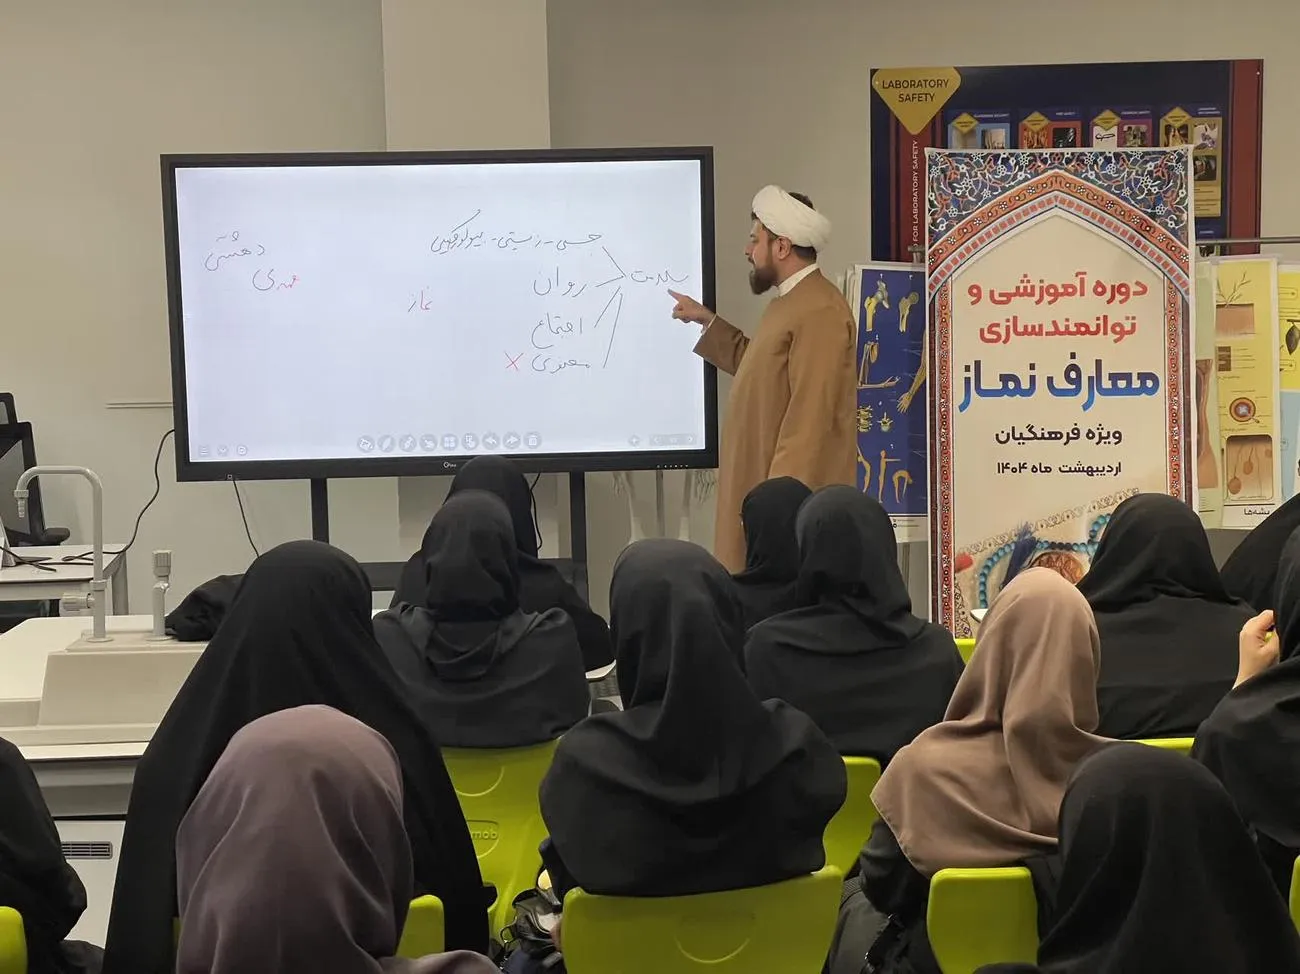 LABORATORY
SAFETY
FOR LABORATORY SAFETY
جسمی - زیستی - بیولوژیکی
روان
سلامت
اجتماع
معنوی ×
نماز
دوره آموزشی و
توانمندسازی
معارف نماز
ویژه فرهنگیان
اردیبهشت ماه ۱۴۰۴